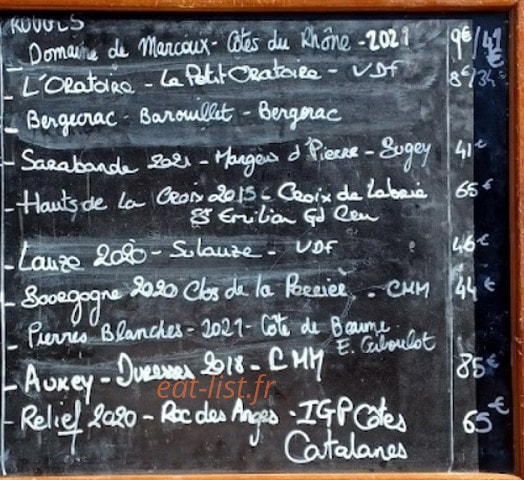 ROUGES
Domaine de Marcoux - Côtes du Rhône - 2021 9€/41€
- L'Oratoire - Le Petit Oratoire - VDF 8€/34
- Bergecrac - Barouillet - Bergerac
- Sarabande 2021 - d'Pierre - Bugey 41€
- Hauts de la Croix 2015 - Croix de Labrie 65€
St Emilian Gd Cru
- Lauze 2020 - Sulauze - VDF 46€
- Bourgogne 2020 Clos de la Perrière - CMM 44€
- Pierres Blanches - 2021 - Côte de Beaune
E. Giboulot
- Auxey - Duresses 2018 - CMM 85€
eat-list.fr
- Relief 2020 - Roc des Anges - IGP Côtes 65€
Catalanes